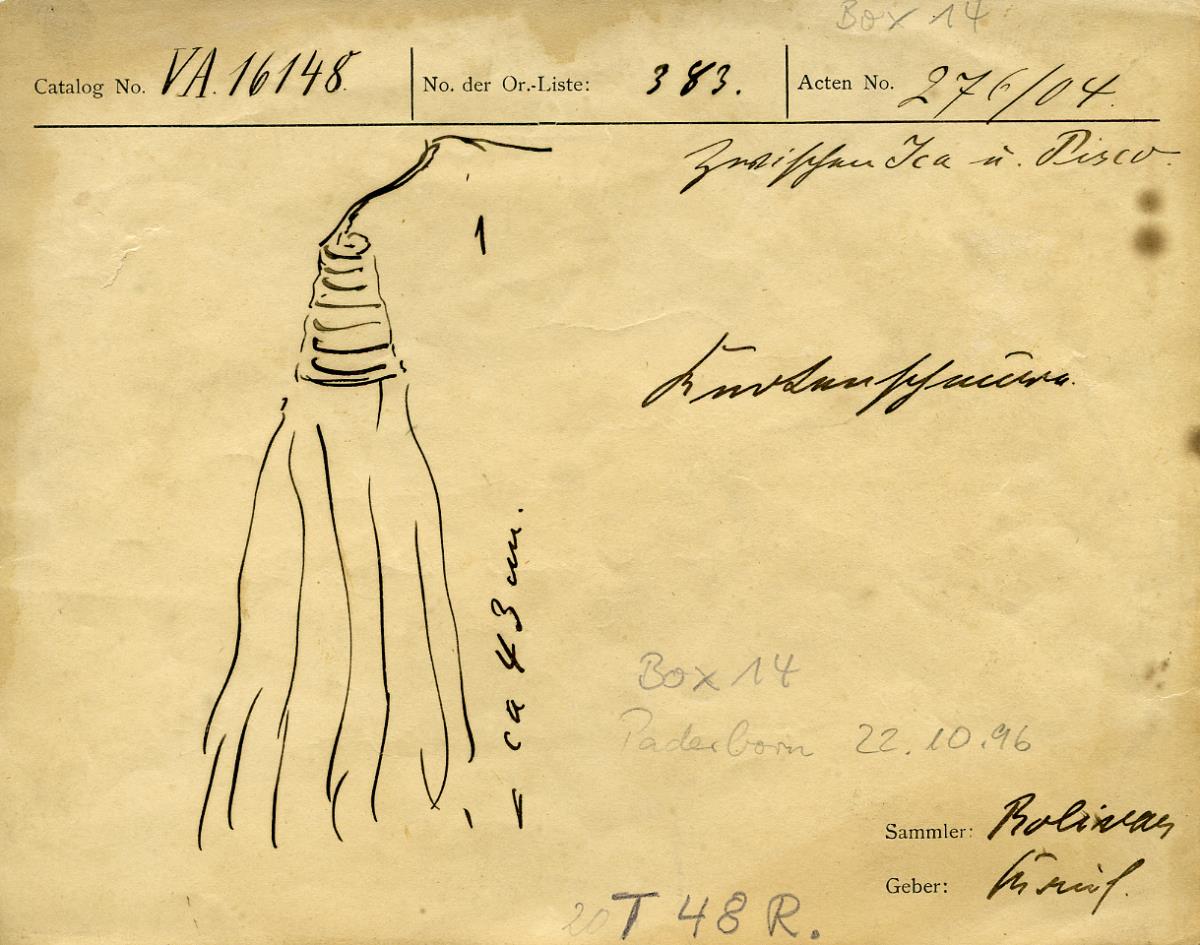 Box 14
Catalog No. VA. 16148. No. der Or.-Liste: 383. Acten No. 276/04.
Zwischen Ica u. Pisco.
1
Knotenschnüre.
ca 43 cm.
Box 14
Paderborn 22.10.96
Sammler: Bolivar
Geber:
T 48 R.